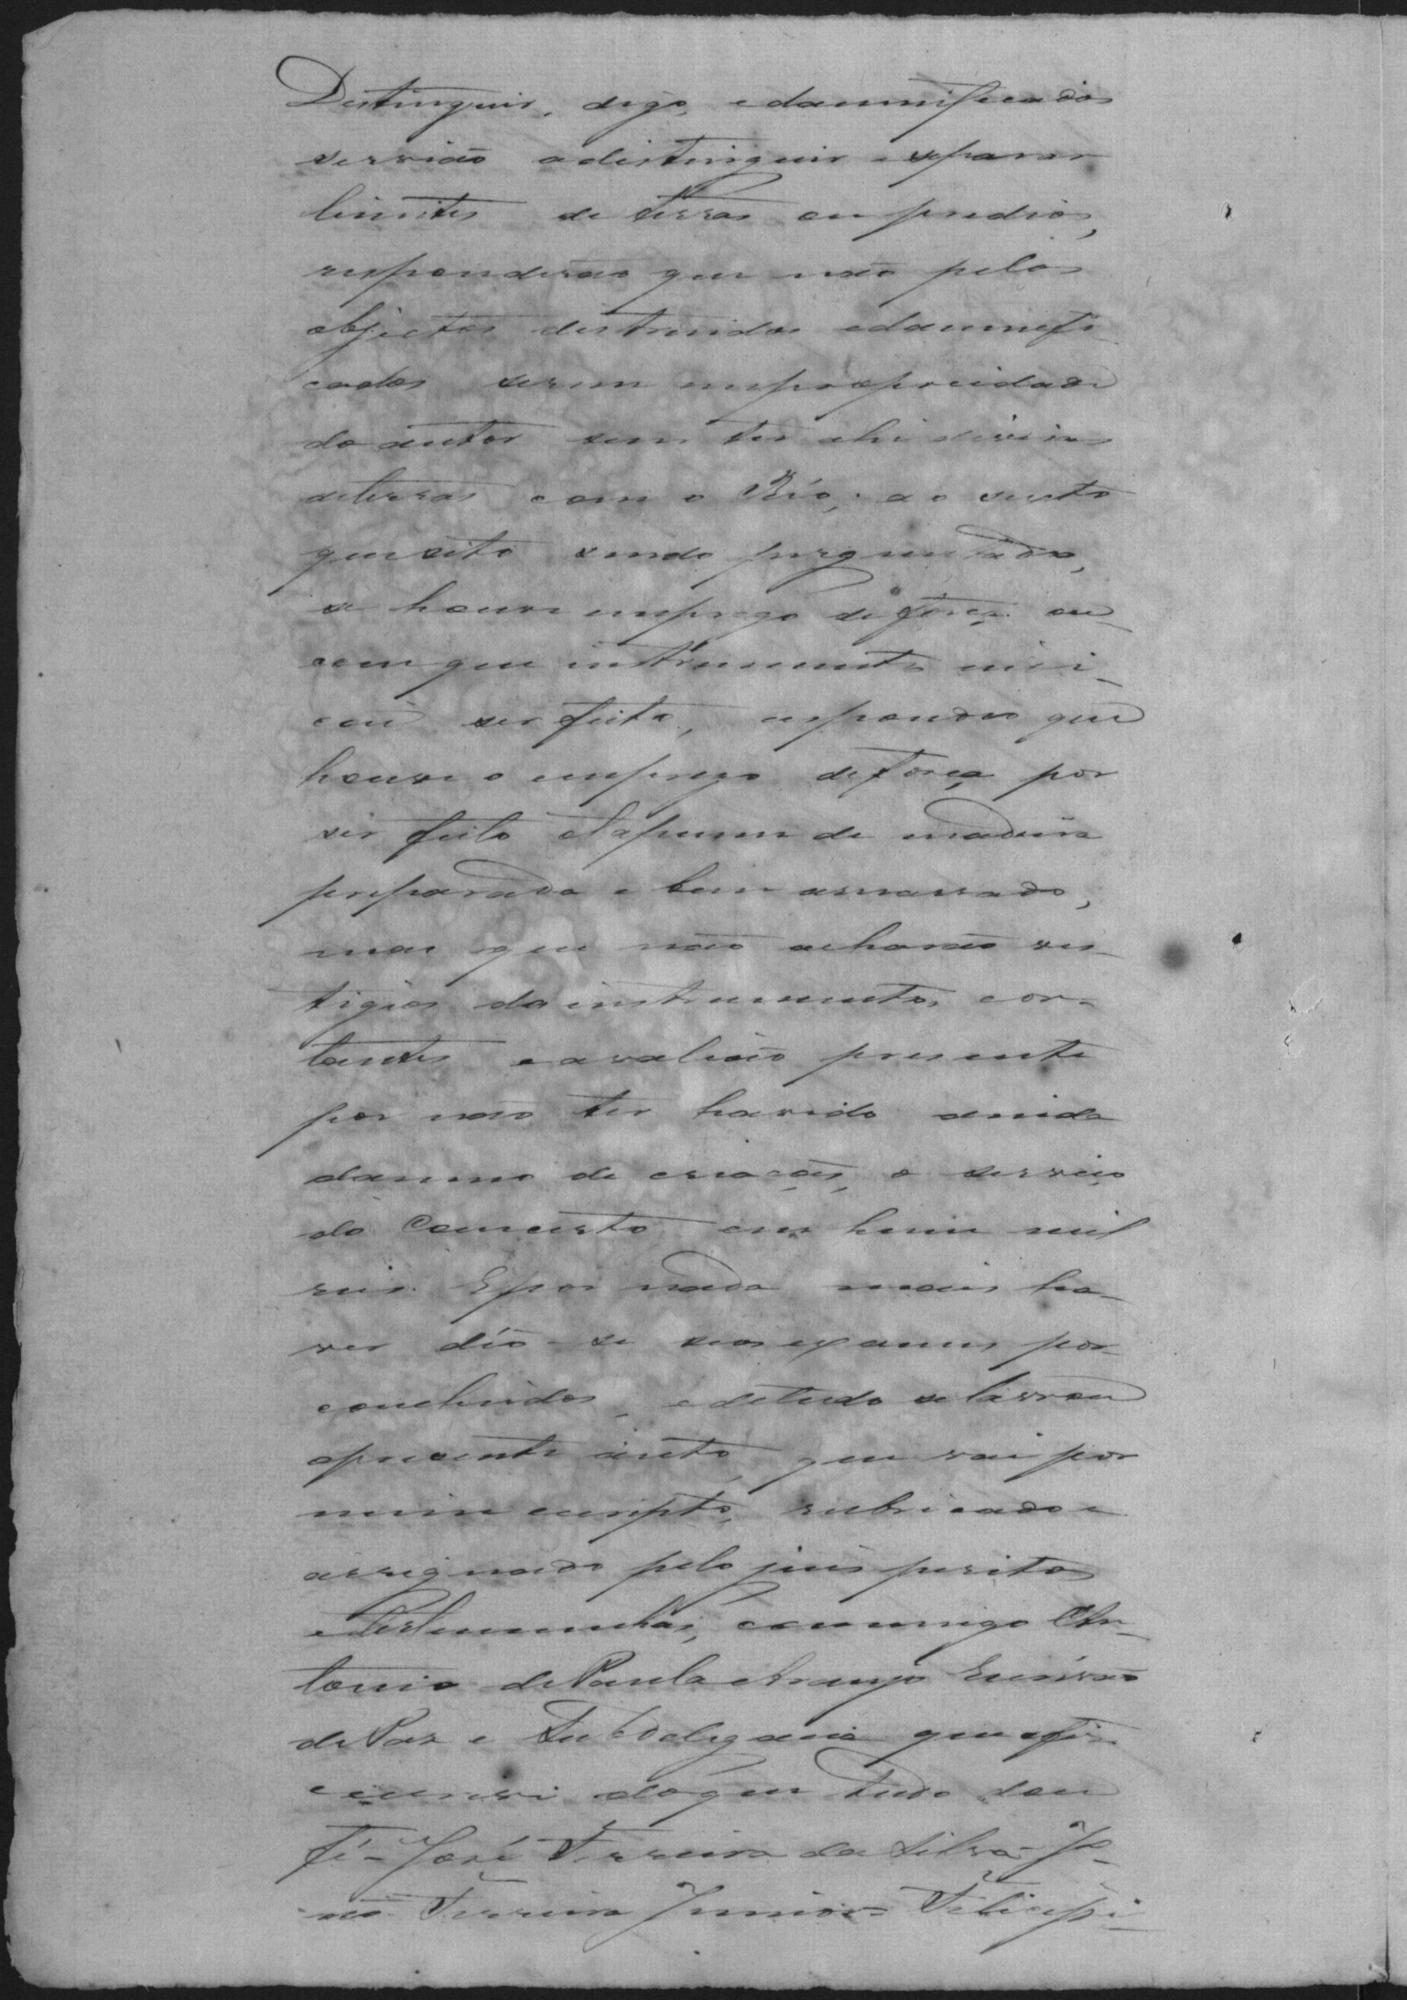 Distinguir, digo, e damnificados
servião a distinguir e separar
limites de terras ou predios,
responderão que não pelos
objectos destruidos e damnifi-
cados serem em propriedade
do autor sem ter ahi divisas
de terras com o Réo; ao sexto
quesito sendo perguntado,
se houve emprego de força ou
com que instrumento
ser feito, responderão que
houve o emprego de força por
ser feito o tapume de madeira
preparada e bem amarrado,
mas que não acharão ves-
tigios de instrumentos cor-
tantes e avalião presente
por não ter havido ainda
damno de criações, o serviço
do Concerto em hum mil
reis. E por nada mais ha-
ver dão-se seos exames por
concluidos, e de tudo se lavrou
o presente auto, que vai por
mim escripto, rubricado e
assignado pelo juis peritos
e testemunhas, commigo An-
tonio de Paula Araujo Escrivão
de Paz e Subdelegacia que o fis
e escrevi do que tudo dou
fé - José Ferreira da Silva - Jo-
ão Ferreira Junior -